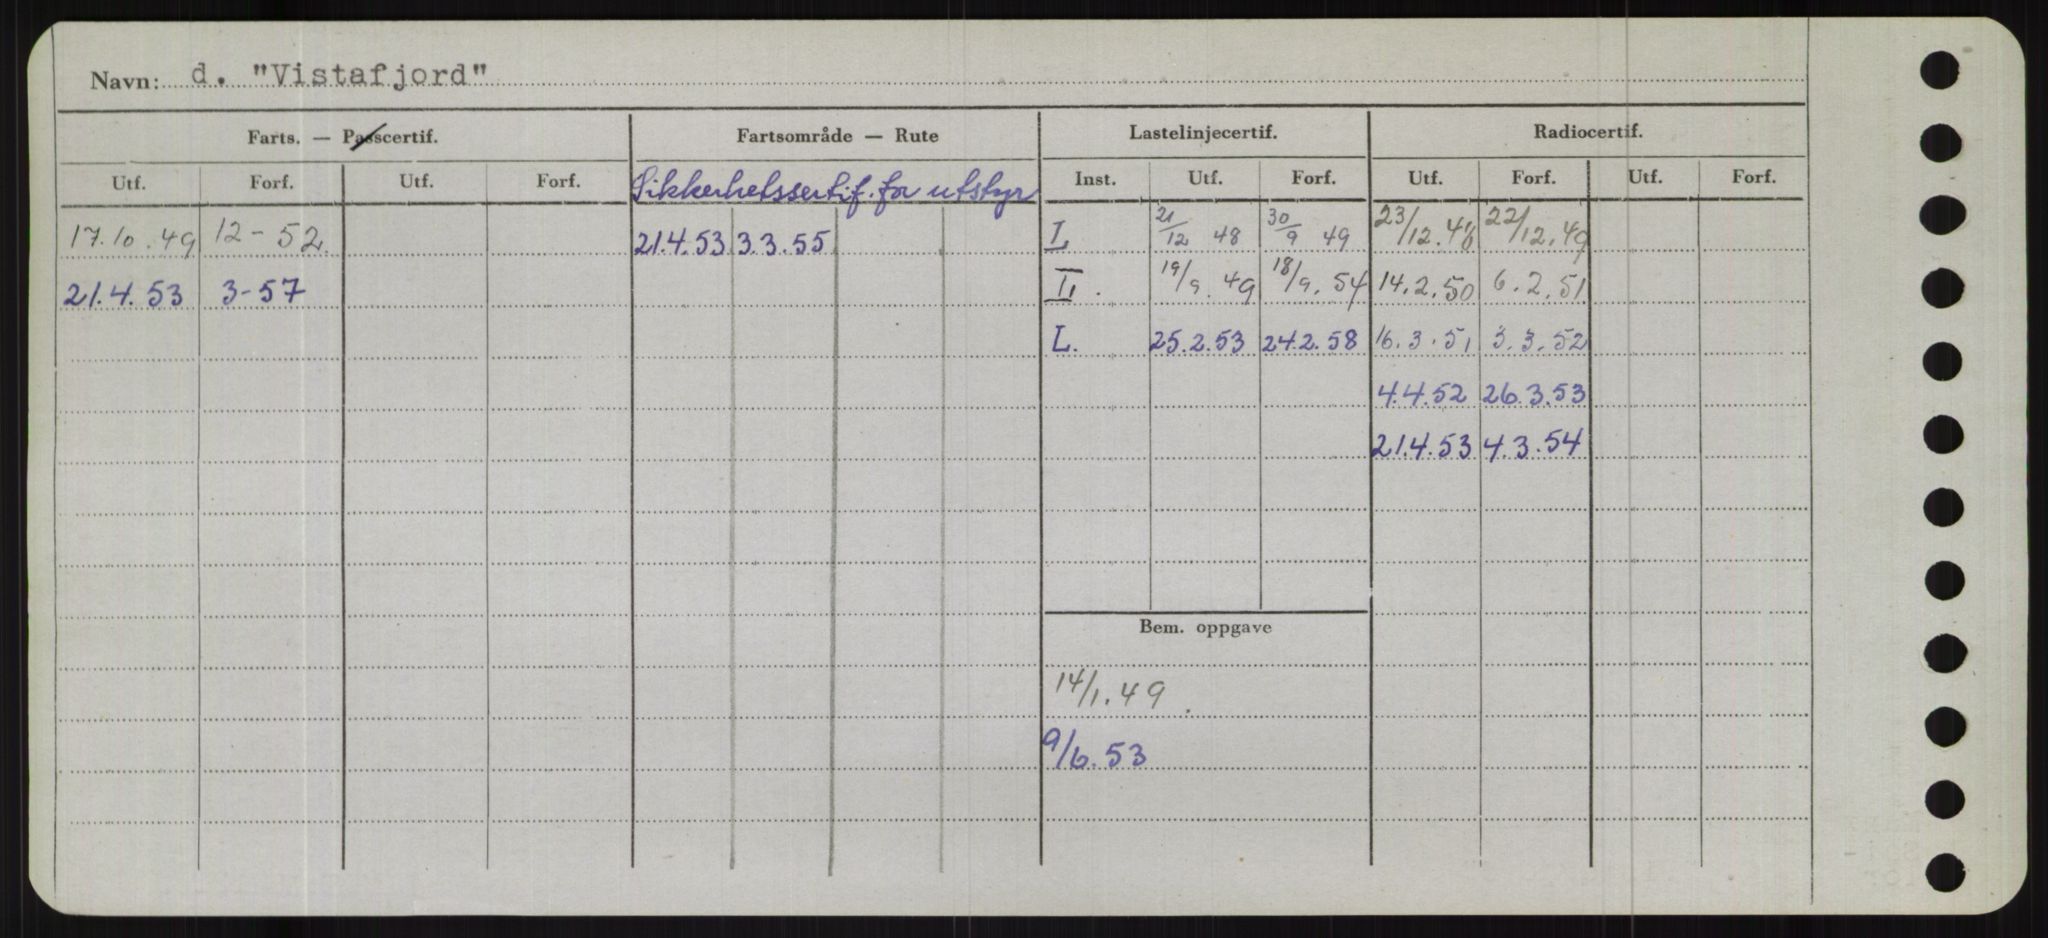 Navn: d. "Vistafjord"
Farts. — Passcertif. Fartsområde — Rute Lastelinjecertif. Radiocertif.
Utf. Forf. Utf. Forf. Sikkerhetssertif. for utstyr Inst. Utf. Forf. Utf. Forf. Utf. Forf.
17.10.49 12-52. 21.4.53 3.3.55 L 21/12 48 30/9 49 23/12.48 22/12.49
21.4.53 3-57 19/9.49 18/9.54 14.2.50 6.2.51
L. 25.2.53 24.2.58 16.3.51 3.3.52
4.4.52 26.3.53
21.4.53 4.3.54
Bem. oppgave
14/1.49
9/6.53